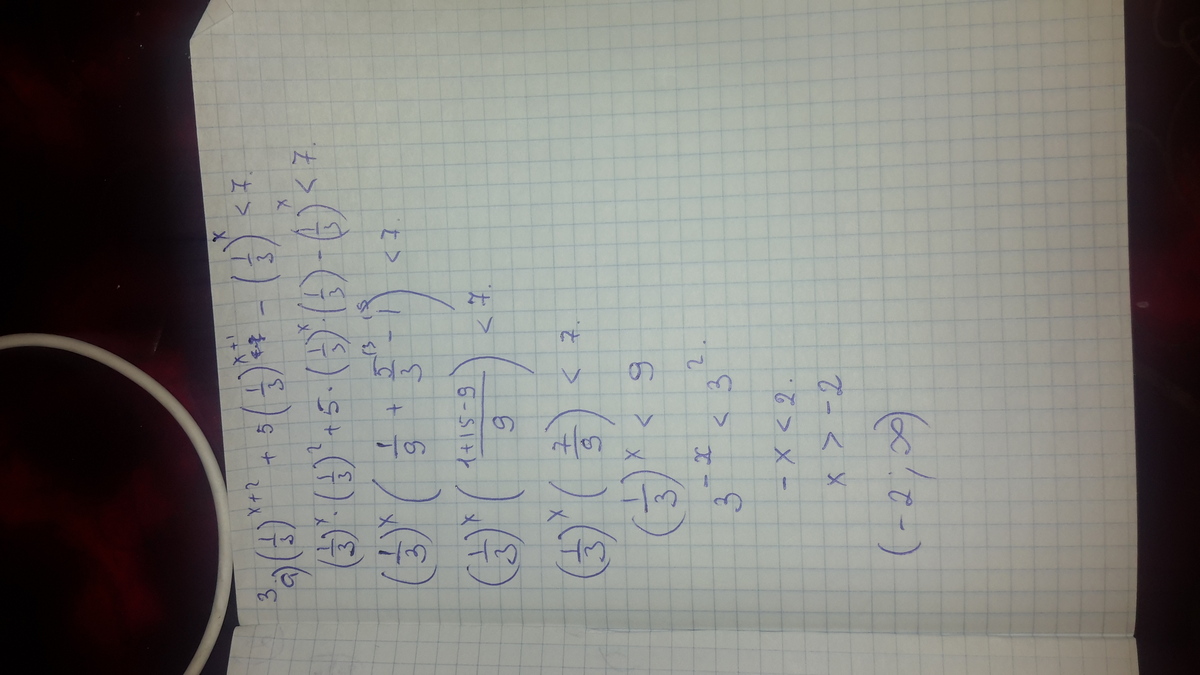 3.
a) (1/3)^(x+2) + 5(1/3)^(x+1) - (1/3)^x < 7.
(1/3)^x · (1/3)^2 + 5 · (1/3)^x · (1/3) - (1/3)^x < 7.
(1/3)^x (1/9 + 5/3 - 1) < 7.
(1/3)^x ((1+15-9)/9) < 7.
(1/3)^x (7/9) < 7.
(1/3)^x < 9
3^(-x) < 3^2.
-x < 2.
x > -2
(-2; ∞)